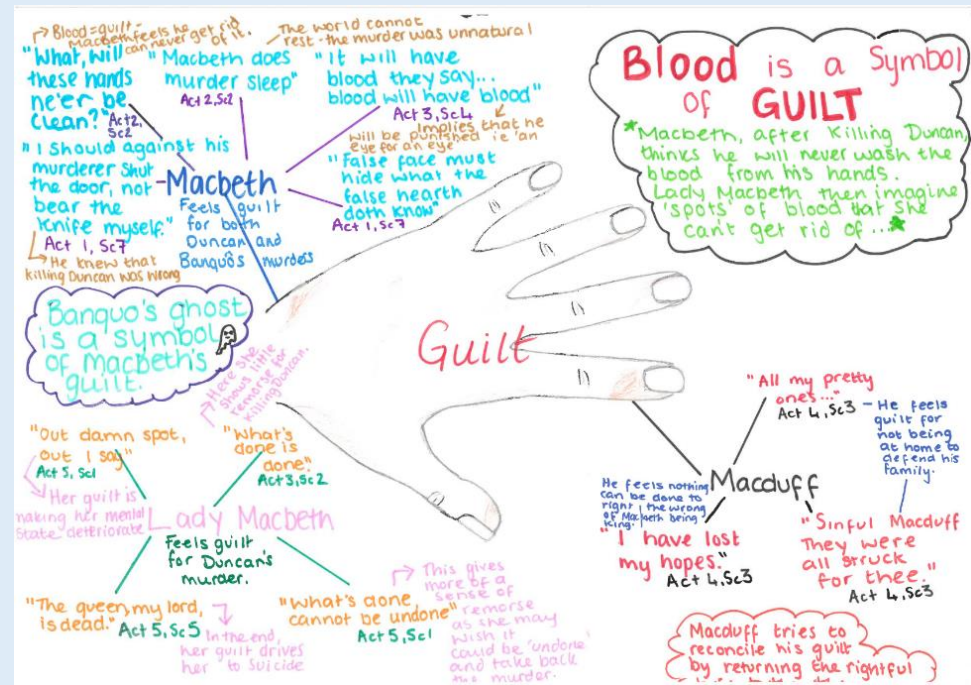 Blood = guilt -
Macbeth feels he
can never get rid
of it.
"What, will
these hands
ne'er be
clean?"
Act 2,
Sc2
The world cannot
rest - the murder was unnatural
"Macbeth does
murder sleep"
Act 2, Sc2
"It will have
blood they say...
blood will have blood"
Act 3, Sc4
Implies that he
will be punished ie 'an
eye for an eye'
"I should against his
murderer shut
the door, not
bear the
knife myself."
Act 1, Sc7
He knew that
killing Duncan was wrong
Macbeth
Feels guilt
for both
Duncan and
Banquo's murders
"False face must
hide what the
false hearth
doth know"
Act 1, Sc7
Blood is a Symbol
of GUILT
*Macbeth, after killing Duncan,
thinks he will never wash the
blood from his hands.
Lady Macbeth then imagine
'spots' of blood that she
can't get rid of ...*
Banquo's ghost
is a symbol
of Macbeth's
guilt.
Guilt
Here she
shows little
remorse for
killing Duncan.
"Out damn spot,
out I say"
Act 5, Sc1
Her guilt is
making her mental
state deteriorate
"What's
done is
done."
Act 3, Sc2
Lady Macbeth
Feels guilt
for Duncan's
murder.
"The queen, my lord,
is dead."
Act 5, Sc5
In the end,
her guilt drives
her to suicide
"What's done,
cannot be undone"
Act 5, Sc1
This gives
more of a
sense of
remorse
as she may
wish it
could be 'undone'
and take back
the murder.
"All my pretty
ones..."
Act 4, Sc3
He feels
guilt for
not being
at home to
defend his
family.
Macduff
He feels nothing
can be done to
right the wrong
of Macbeth being
King.
"I have lost
my hopes."
Act 4, Sc3
"Sinful Macduff
They were
all struck
for thee."
Act 4, Sc3
Macduff tries to
reconcile his guilt
by returning the rightful